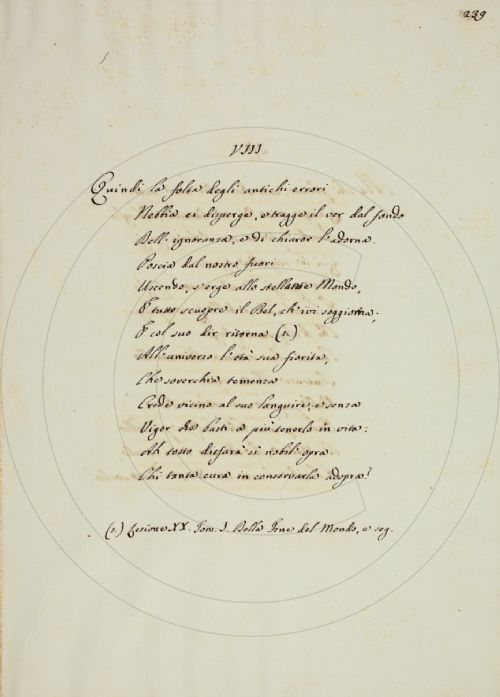 239
VIII
Quindi la folta degli antichi errori
Nebbia ei disperge, e tragge il ver dal fondo
Dell' ignoranza, e di chiaror l' adorna.
Poscia dal nostro fuori
Uscendo, s' erge allo stellante Mondo,
E tutto scuopre il Bel, ch' ivi soggiorna;
E col suo dir ritorna (1.)
All' universo l' età sua fiorita,
Che soverchia temenza
Crede vicino al suo languire, e senza
Vigor che basti a più tenerlo in vita:
Ah tosto disfarà sì nobil' opra
Chi tanta cura in conservarla adopra?
(1.) Lezione XX. Tom. I. Della Fine del Mondo, e seg.